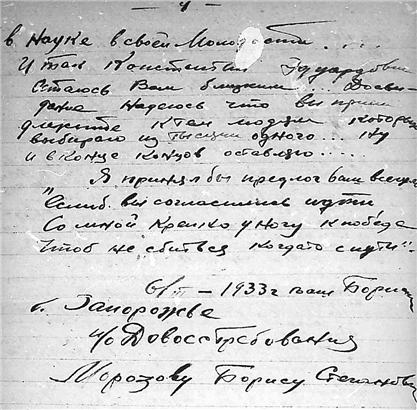 — 4 —
в Науке в своей Молодости....
И так Константин Эдуардович
Остаюсь Вам близким... Досви-
дание Надеюсь что вы прин
длежите К тем людям которых
выбираю из тысячи одного... ну
и в конце концов оставлю....
Я принял бы предлог вам всегда
"Если б. вы согласились идти
Со мной Крепко у ногу к победе
Чтоб не сбиться когдато с пути".
— 1933г ваш Борис
г. Запорожье
Ч/о Довосстребования
Морозову Борису Степанович